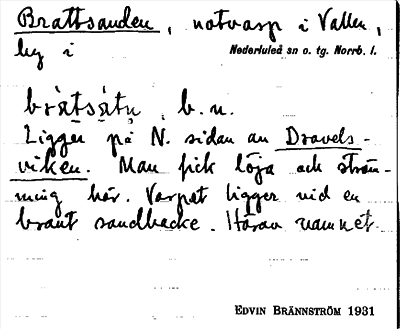 Brattsanden, notvarp i Vallen,
by i Nederluleå sn o. tg. Norrb. l.
bràtsàtṇ, b. n.
Ligger på N. sidan av Dravels-
viken. Man fick löja och ström-
ming här. Varpet ligger vid en
brant sandbacke. Härav namnet.
EDVIN BRÄNNSTRÖM 1931